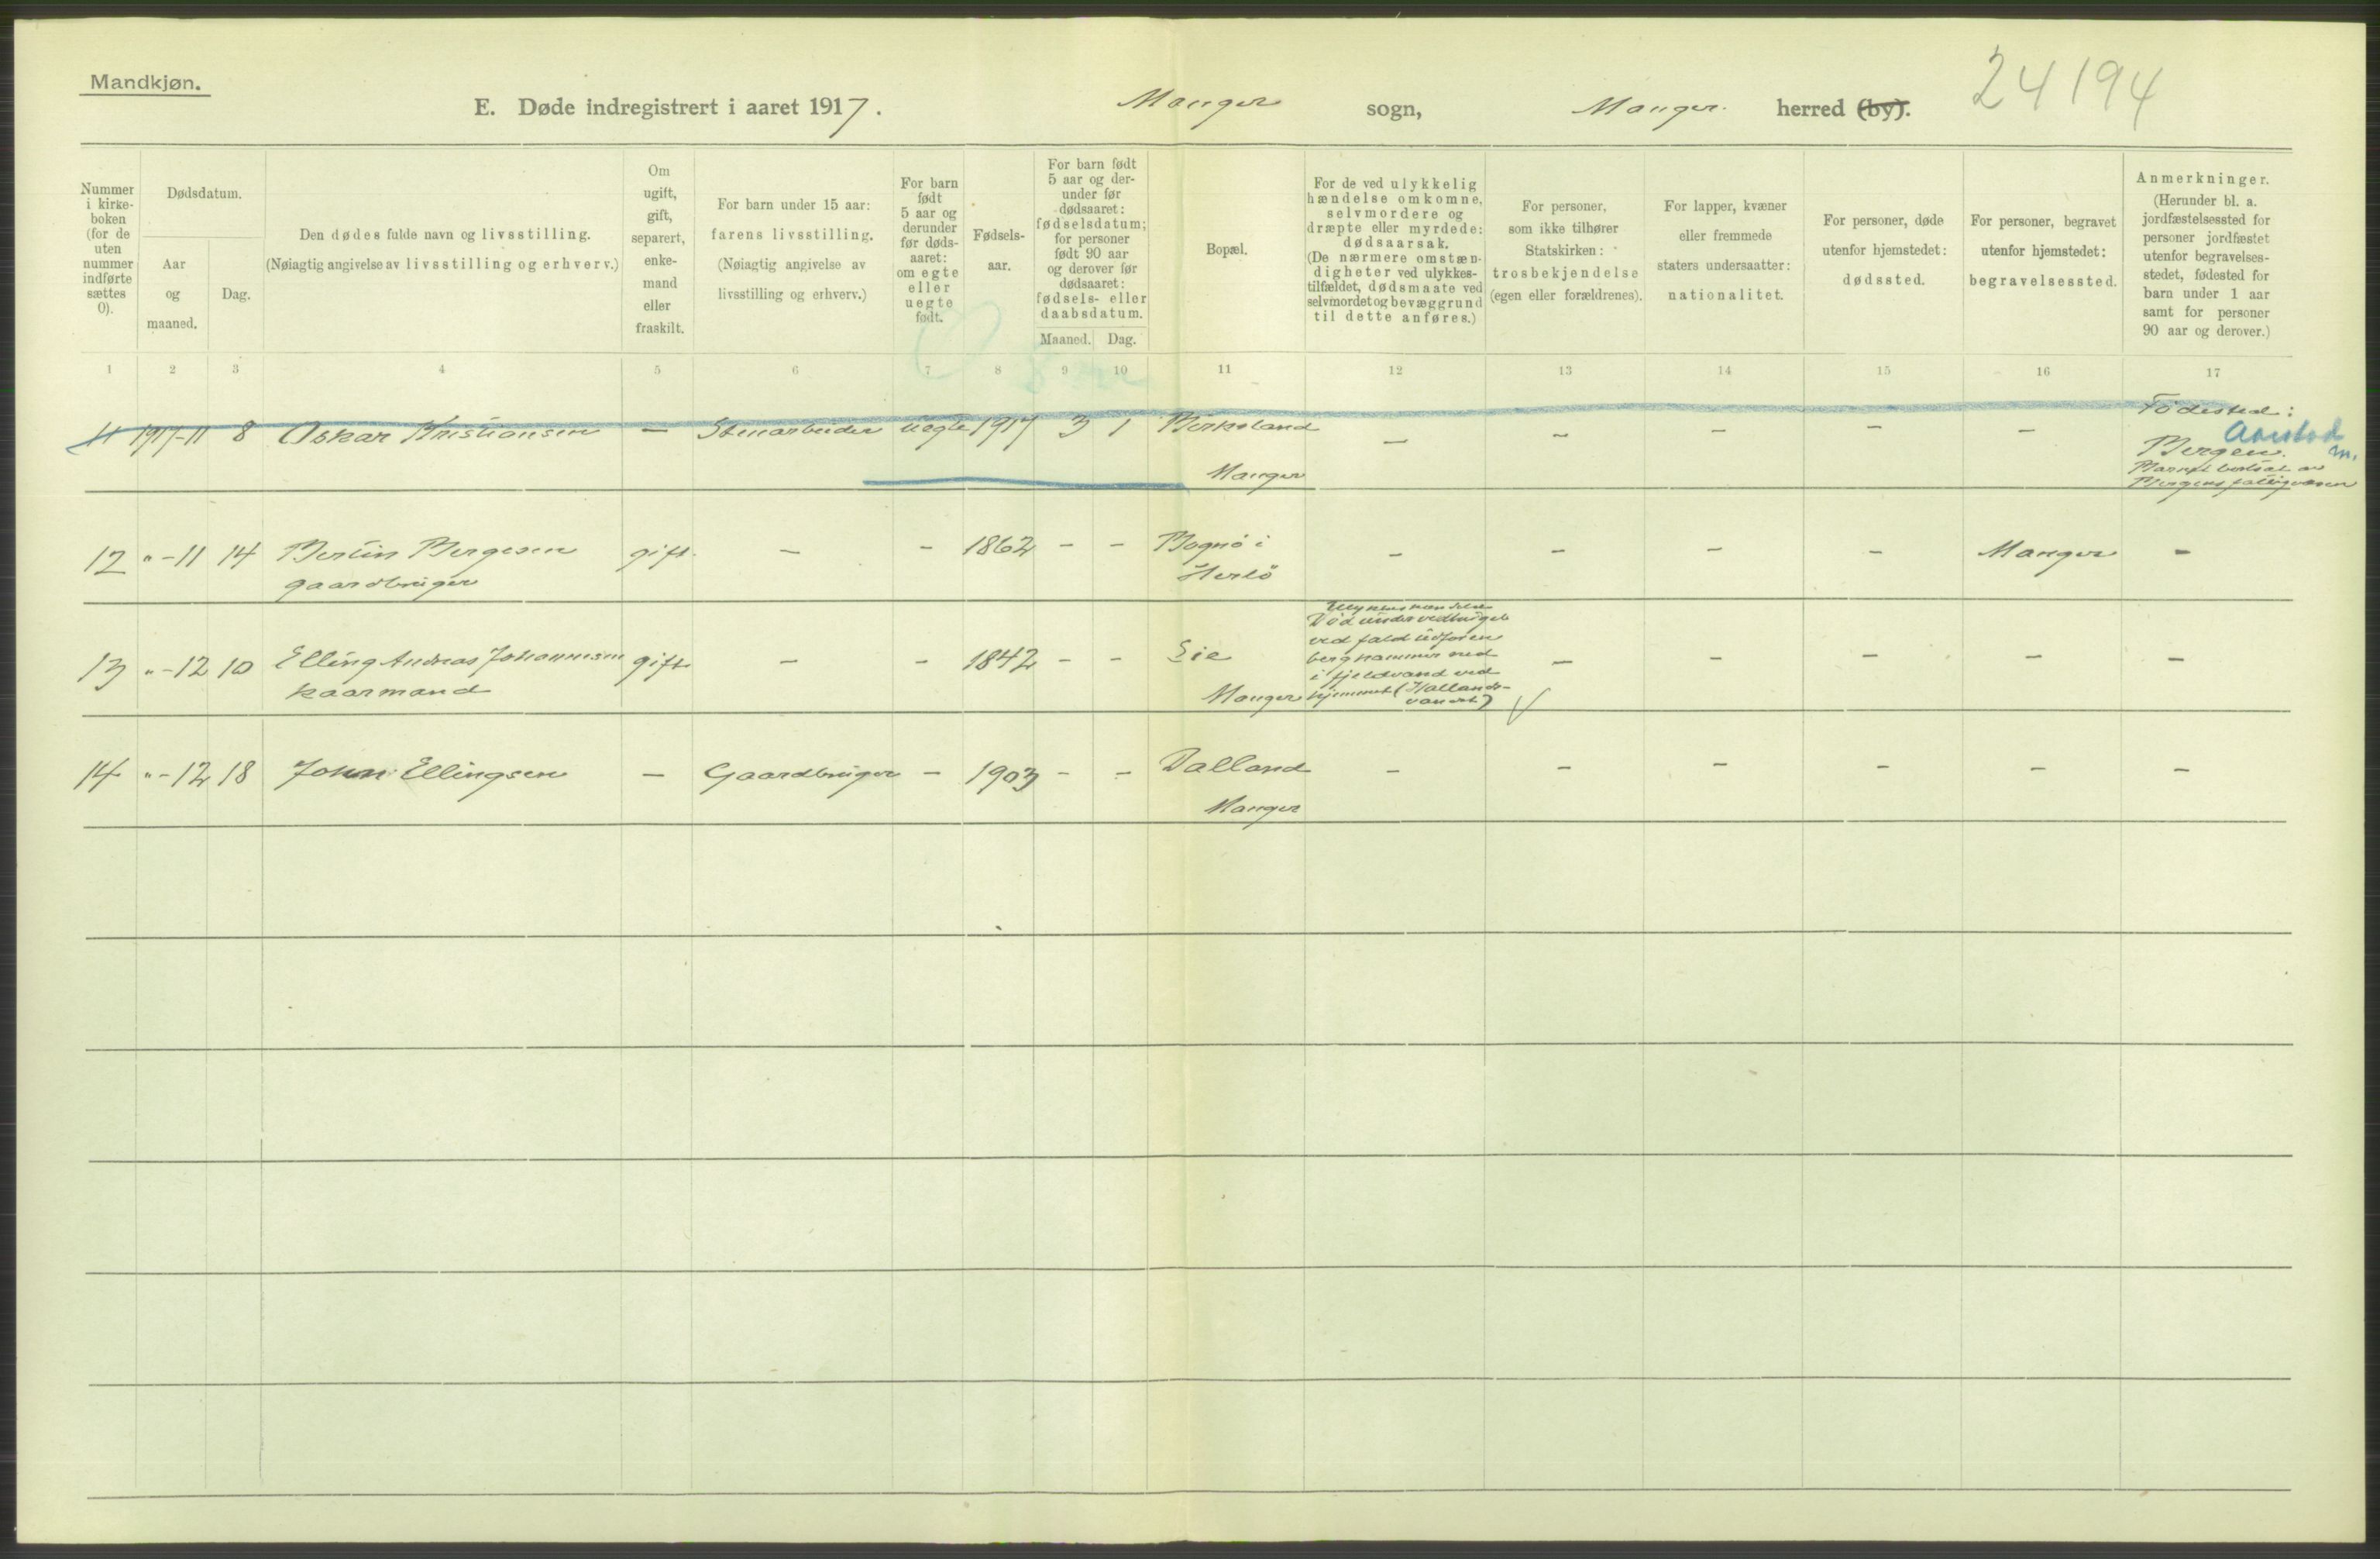 Mandkjøn.
24194
E. Døde indregistrert i aaret 1917. Manger sogn, Manger. herred (by).
Nummer
i kirke-
boken
(for de
uten
nummer
indførte
sættes
0).
Dødsdatum.
Aar
og
maaned.
Dag.
Den dødes fulde navn og livsstilling.
(Nøiagtig angivelse av livsstilling og erhverv.)
Om
ugift,
gift,
separert,
enke-
mand
eller
fraskilt.
For barn under 15 aar:
farens livsstilling.
(Nøiagtig angivelse av
livsstilling og erhverv.)
For barn
født
5 aar og
derunder
før døds-
aaret:
om egte
eller
uegte
født.
Fødsels-
aar.
For barn født
5 aar og der-
under før
dødsaaret:
fødselsdatum;
for personer
født 90 aar
og derover før
dødsaaret:
fødsels- eller
daabsdatum.
Maaned. Dag.
Bopæl.
For de ved ulykkelig
hændelse omkomne,
selvmordere og
dræpte eller myrdede:
dødsaarsak.
(De nærmere omstæn-
digheter ved ulykkes-
tilfældet, dødsmaate ved
selvmordet og bevæggrund
til dette anføres.)
For personer,
som ikke tilhører
Statskirken:
trosbekjendelse
(egen eller forældrenes).
For lapper, kvæner
eller fremmede
staters undersaatter:
nationalitet.
For personer, døde
utenfor hjemstedet:
dødssted.
For personer, begravet
utenfor hjemstedet:
begravelsessted.
Anmerkninger.
(Herunder bl. a.
jordfæstelsessted for
personer jordfæstet
utenfor begravelses-
stedet, fødested for
barn under 1 aar
samt for personer
90 aar og derover.)
1 2 3 4 5 6 7 8 9 10 11 12 13 14 15 16 17
11 1917-11 8 Oskar Kristiansen — Stenarbeider uegte 1917 3 1 Birkeland — — — — — Födested:
Aarstad
Manger Bergen. m.
Barnet bortsat av
Bergens fattigvæsen
12 "-11 14 Bertin Bergesen gift. — — 1862 — — Bognö i — — — — Manger —
gaardbruger Herlö
13 "-12 10 Elling Andreas Johannesen gift — — 1842 — — Lie Ulykkeshændelse
Död under vedhugst
ved fald utfor en
berghammer ned
i fjeldvand ved
kaarmand Manger hjemmet (Hallands-
vandet) — — — — —
14 "-12 18 John Ellingsen — Gaardbruger — 1903 — — Dalland — — — — — —
Manger